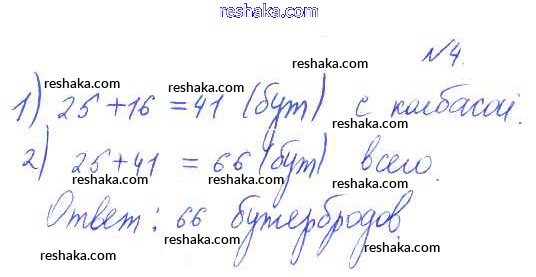 reshaka.com
№4.
1) 25+16 =41 (бут) с колбасой.
2) 25+41 = 66 (бут) всего.
Ответ: 66 бутербродов.
reshaka.com
reshaka.com
reshaka.com
reshaka.com
reshaka.com
reshaka.com
reshaka.com
reshaka.com
reshaka.com
reshaka.com
reshaka.com